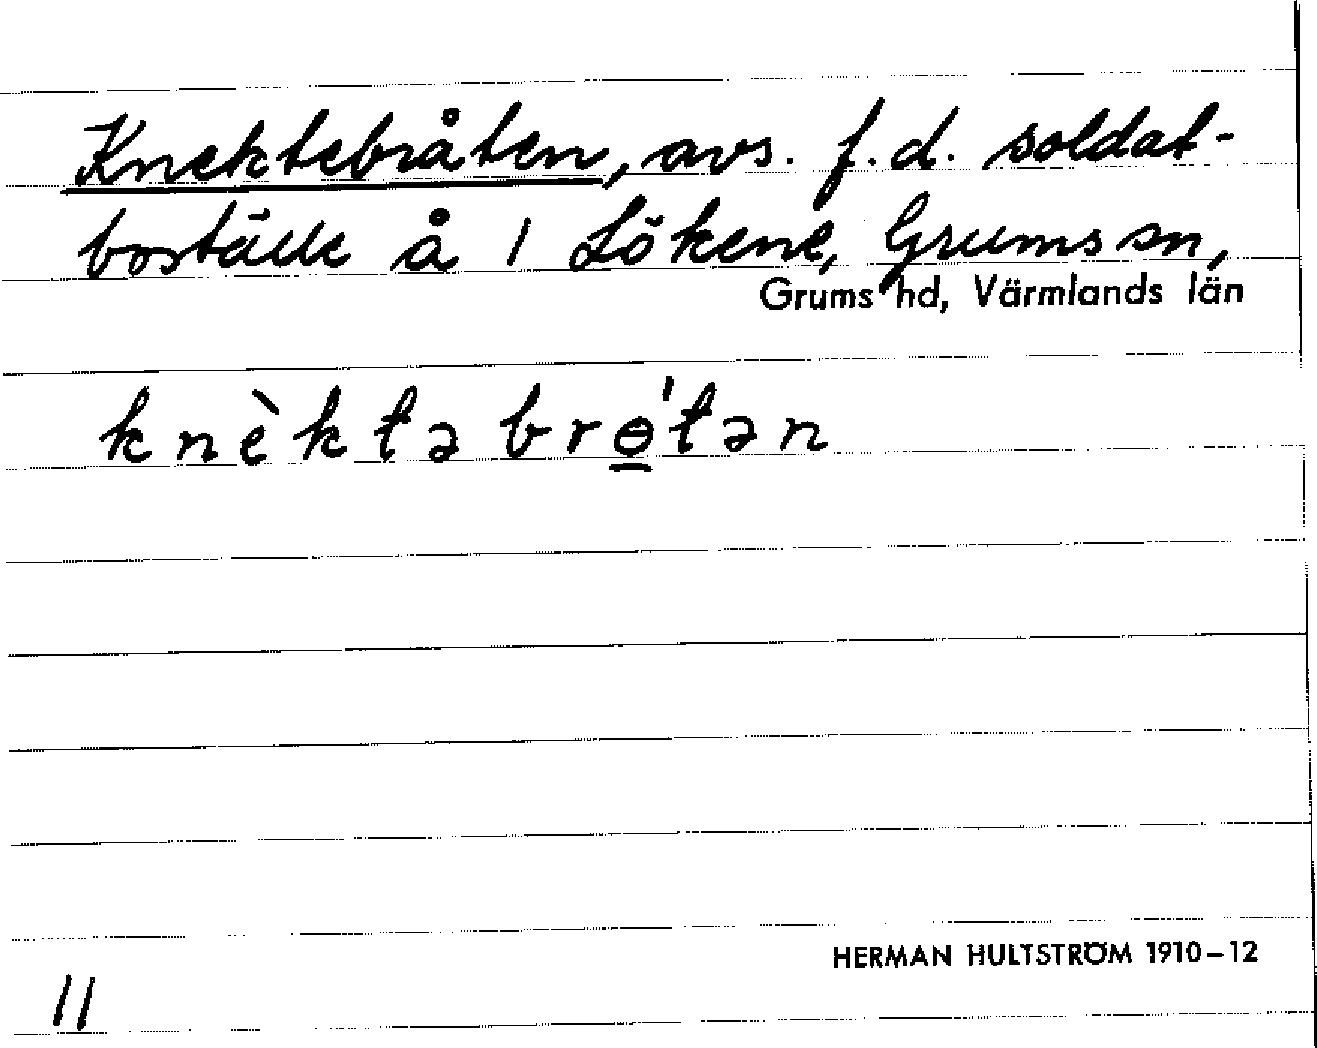 Knektebråten, avs. f.d. soldat-
boställe å 1 Lökene, Grums sn,
Grums hd, Värmlands län
knèktəbrɵ̲́tən
HERMAN HULTSTRÖM 1910–12
11